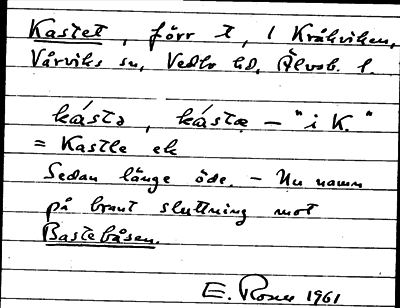 Kastet, förr t, i Kråkviken,
Vårviks sn, Vedbo hd, Älvsb. l.
kástə, kástæ – "i K."
= Kastle ek
Sedan länge öde. – Nu namn
på brant sluttning mot
Bastebåsen.
E. Rosen 1961